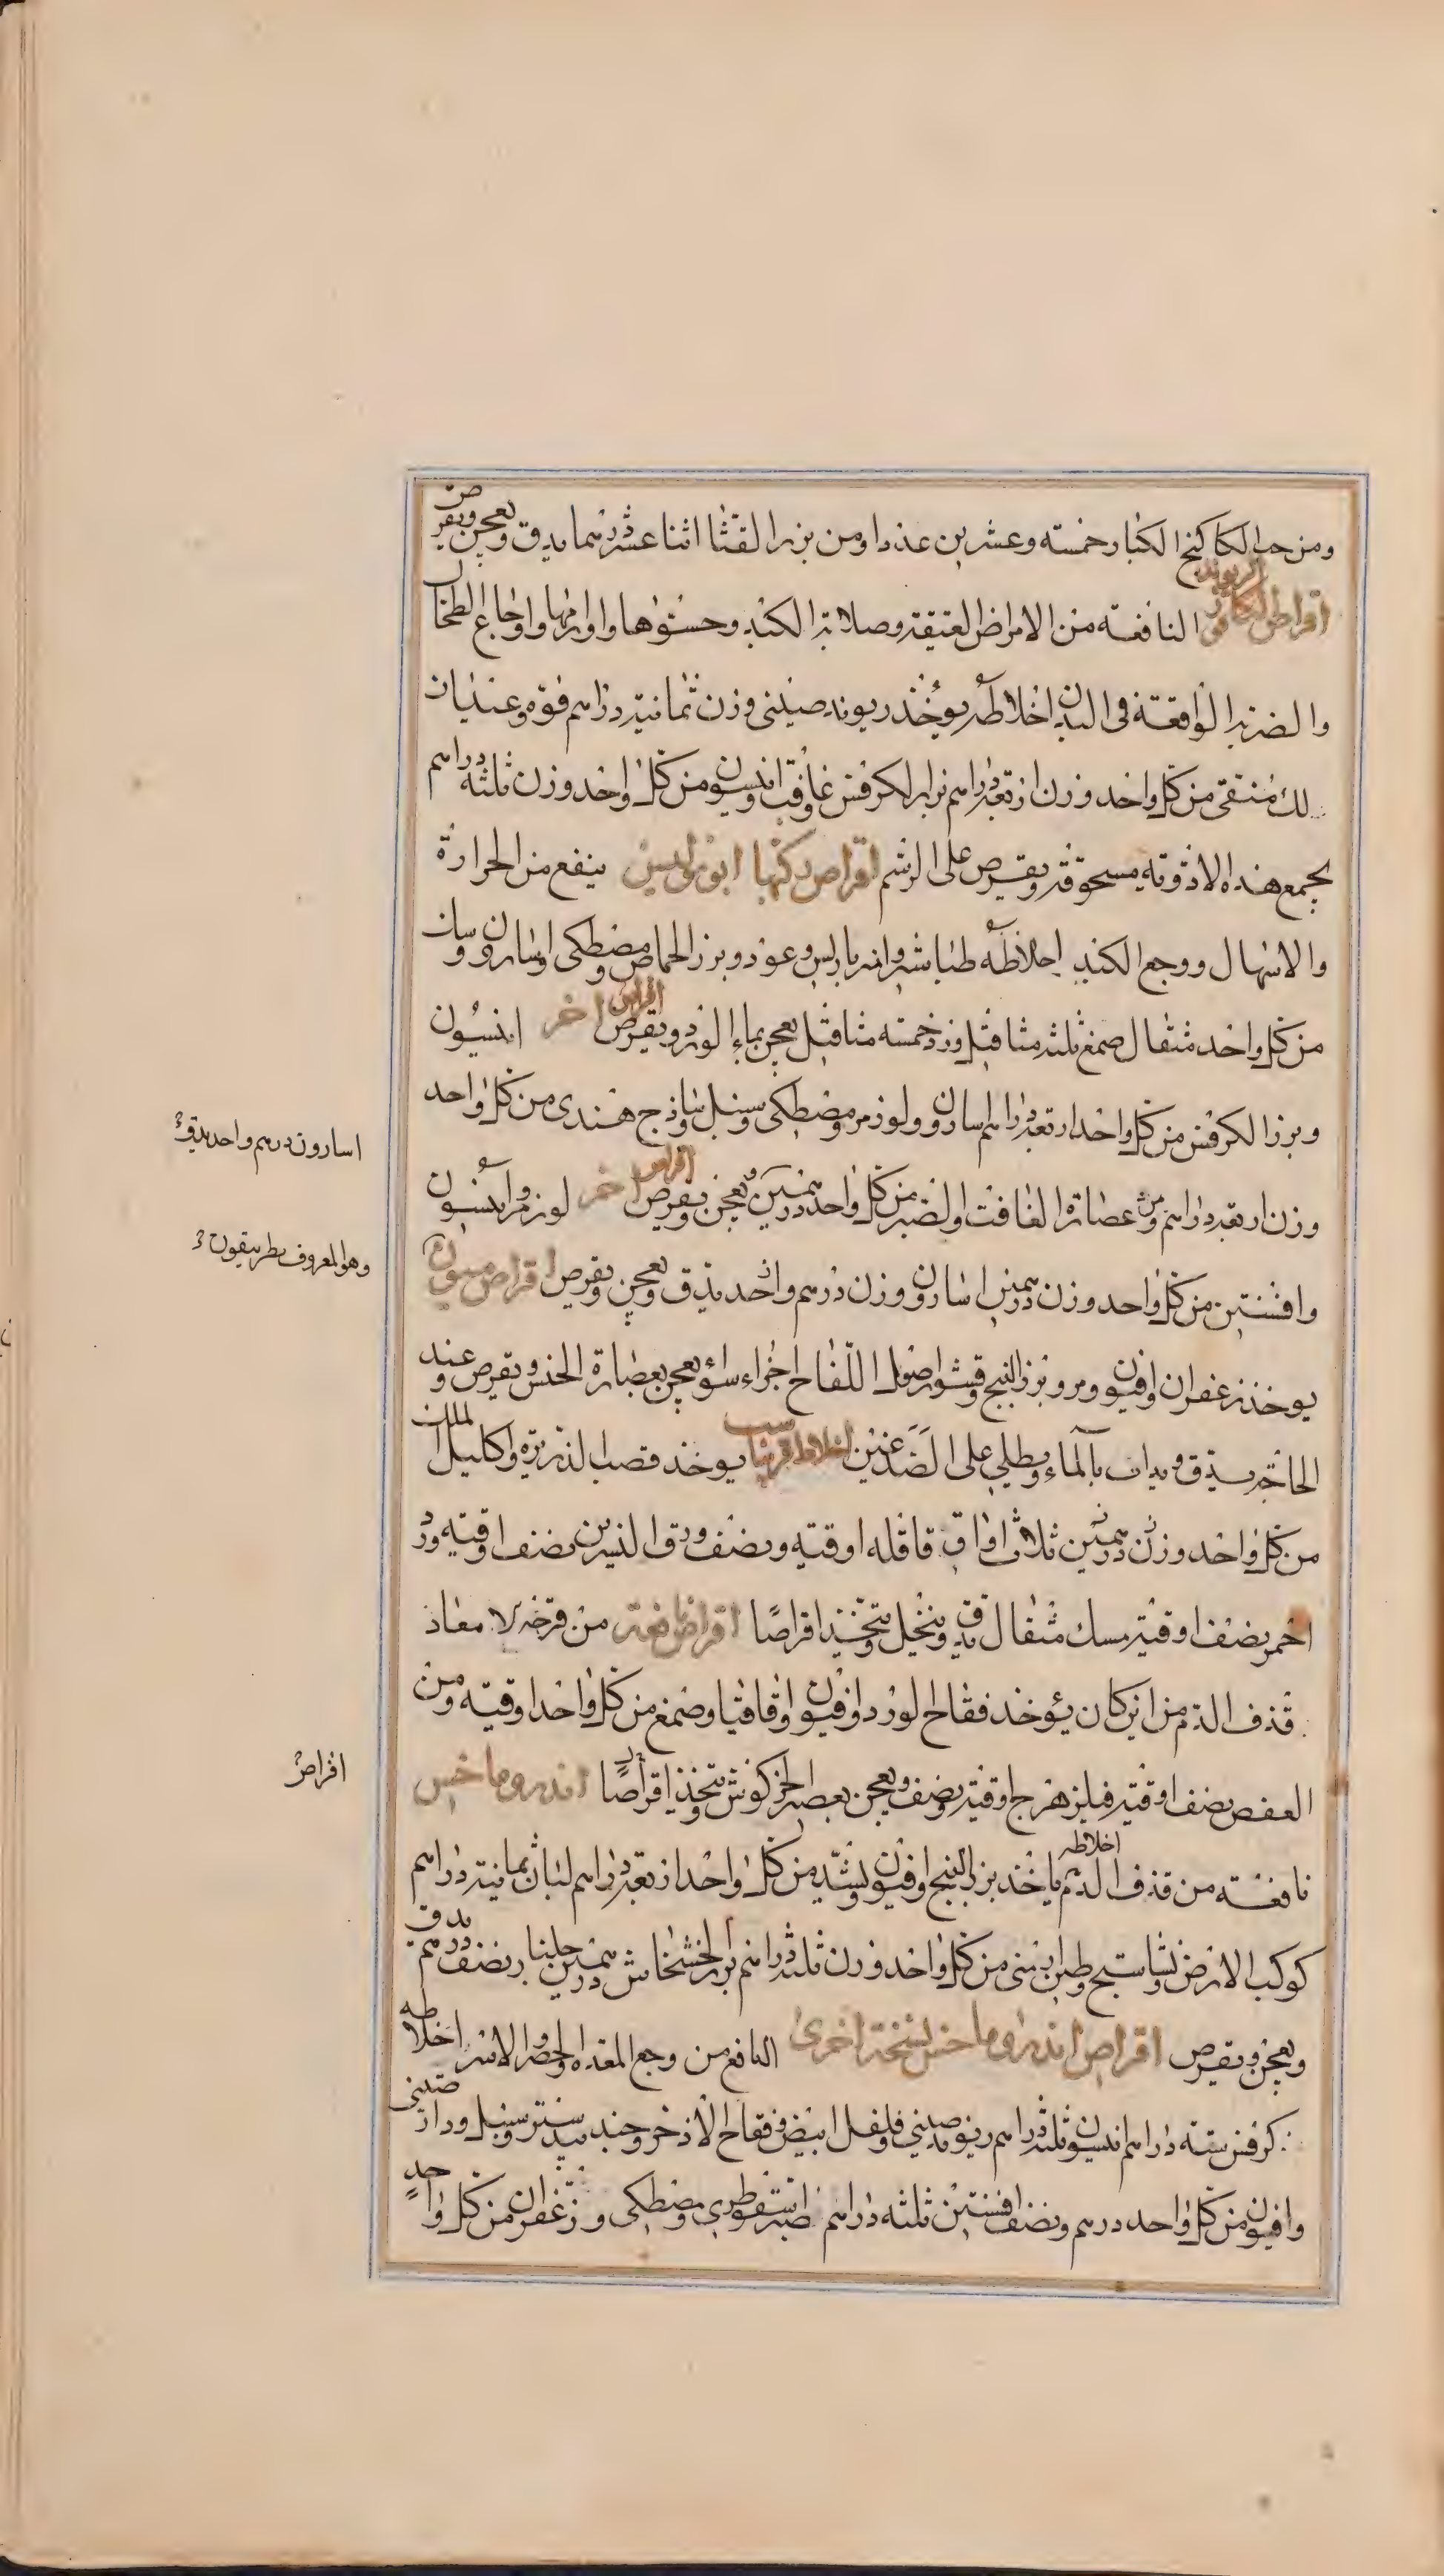 ومن حب الكاكنج الكبار خمسه وعشرين عددا ومن بزر القثا اثنا عشر درهما يدق ويعجن ويقرص
اقراص الريوند النافعه من الامراض العتيقة وصلابة الكبد وحسوها واورامها واوجاع الطحال
والضربة الواقعة فى البدن اخلاطه يوخذ ريوند صينى وزن ثمانية دراهم فوه وعيدان
لك منقى من كل واحد وزن اربعة دراهم بزر الكرفس غافت وانيسون من كل واحد وزن ثلثه دراهم
يجمع هذه الادوية مسحوقة ويقرص على الرسم اقراص ذكرها ابورلوس ينفع من الحرارة
والاسهال ووجع الكبد اخلاطه طباشير وانبرباريس وعود وبزر الحماض ومصطكى واسارون وسان
من كل واحد مثقال صمغ ثلثه مثاقيل ورد خمسه مثاقيل يعجن بماء الورد ويقرص اقراص اخر انيسون
وبزر الكرفس من كل واحد اربعة دراهم اسارون ولوز مر ومصطكى وسنبل وساذج هندى من كل واحد
وزن اربعة دراهم ومن عصارة الغافت والصبر من كل واحد درهمين يعجن ويقرص اقراص اخر لوز مر وانيسون
وافسنتين من كل واحد وزن درهمين اسارون وزن درهم واحد يدق ويعجن ويقرص اقراص
يوخذ زعفران وافيون ومر وبزر البنج وقشور اصول اللفاح اجزاء سواء يعجن بعصارة الخس ويقرص وعند
الحاجة يدق ويداف بالماء ويطلى على الصدغين اخلاط يوخذ قصب الذريرة واكليل الملك
من كل واحد وزن درهمين ثلاث اواق قاقله اوقيه ونصف ورق النسرين نصف اوقيه ورد
احمر نصف اوقية مسك مثقال يدق وينخل ويتخذ اقراصا اقراص نافعة من قرحة الامعاء
قذف الدم من اين كان يؤخذ فقاح الورد وافيون واقاقيا وصمغ من كل واحد اوقيه ومن
العفص نصف اوقية فيلزهرج اوقية ونصف ويعجن بعصير الخركوش ويتخذ اقراصا اندروماخس
نافعه من قذف الدم اخلاطه ياخذ بزر البنج وافيون من كل واحد اربعة دراهم لبان ثمانية دراهم
كوكب الارض ونشاستج وطين ارمنى من كل واحد وزن ثلثه دراهم بزر الخشخاش درهمين جلنار نصف درهم يدق
ويعجن ويقرص اقراص اندروماخس نسخة اخرى النافع من وجع المعده والحصر والاسر اخلاطه
كرفس سته دراهم انيسون ثلثه دراهم ريوند صينى وفلفل ابيض وفقاح الاذخر وجند بيدستر وسنبل ودار صينى
وافيون من كل واحد درهم ونصف افسنتين ثلثه دراهم صبر اسقوطرى ومصطكى وزعفران من كل واحد
اسارون درهم واحد يدق
وهو المعروف بطريقون
اقراص